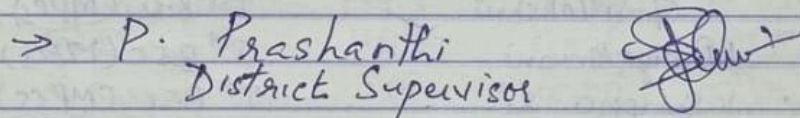 → P. Prashanthi
District Supervisor